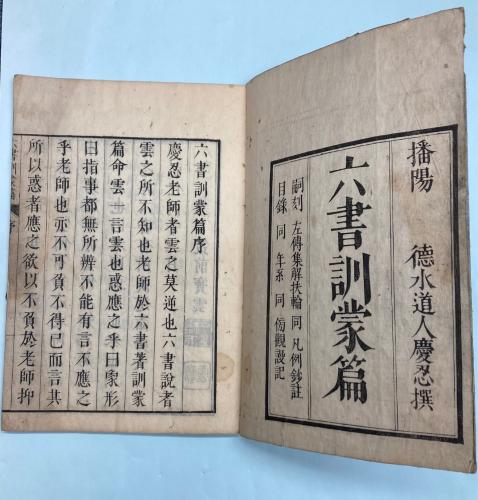 播陽 德水道人慶忍撰
六書訓蒙篇
嗣刻 左傳集解扶輪 同 凡例鈔註
目錄 同 年系 同 傍觀謾記
六書訓蒙篇序
慶忍老師者雲之莫逆也六書說者
雲之所不知也老師於六書著訓蒙
篇命雲一言雲也惑應之乎曰象形
曰指事都無所辨不能有言不應之
乎老師也亦不可負不得已而言共
所以惑者應之欲以不負於老師抑